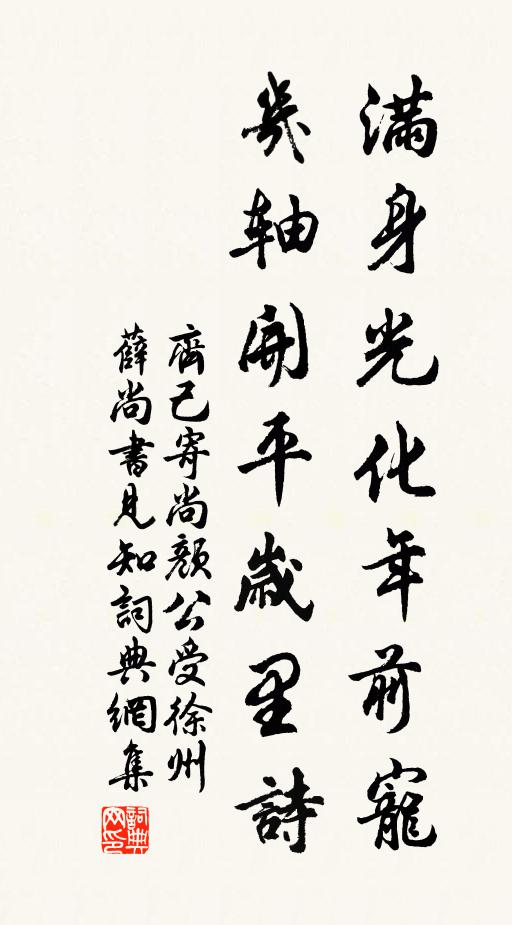 滿身光化年前寵
幾軸開平歲里詩
齊己寄尚顏公受徐州
薛尚書見知詞典網集
詞典
网印